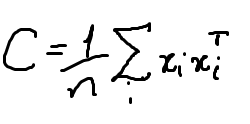 C = \frac{1}{n} \sum_{i} x_i x_i^T